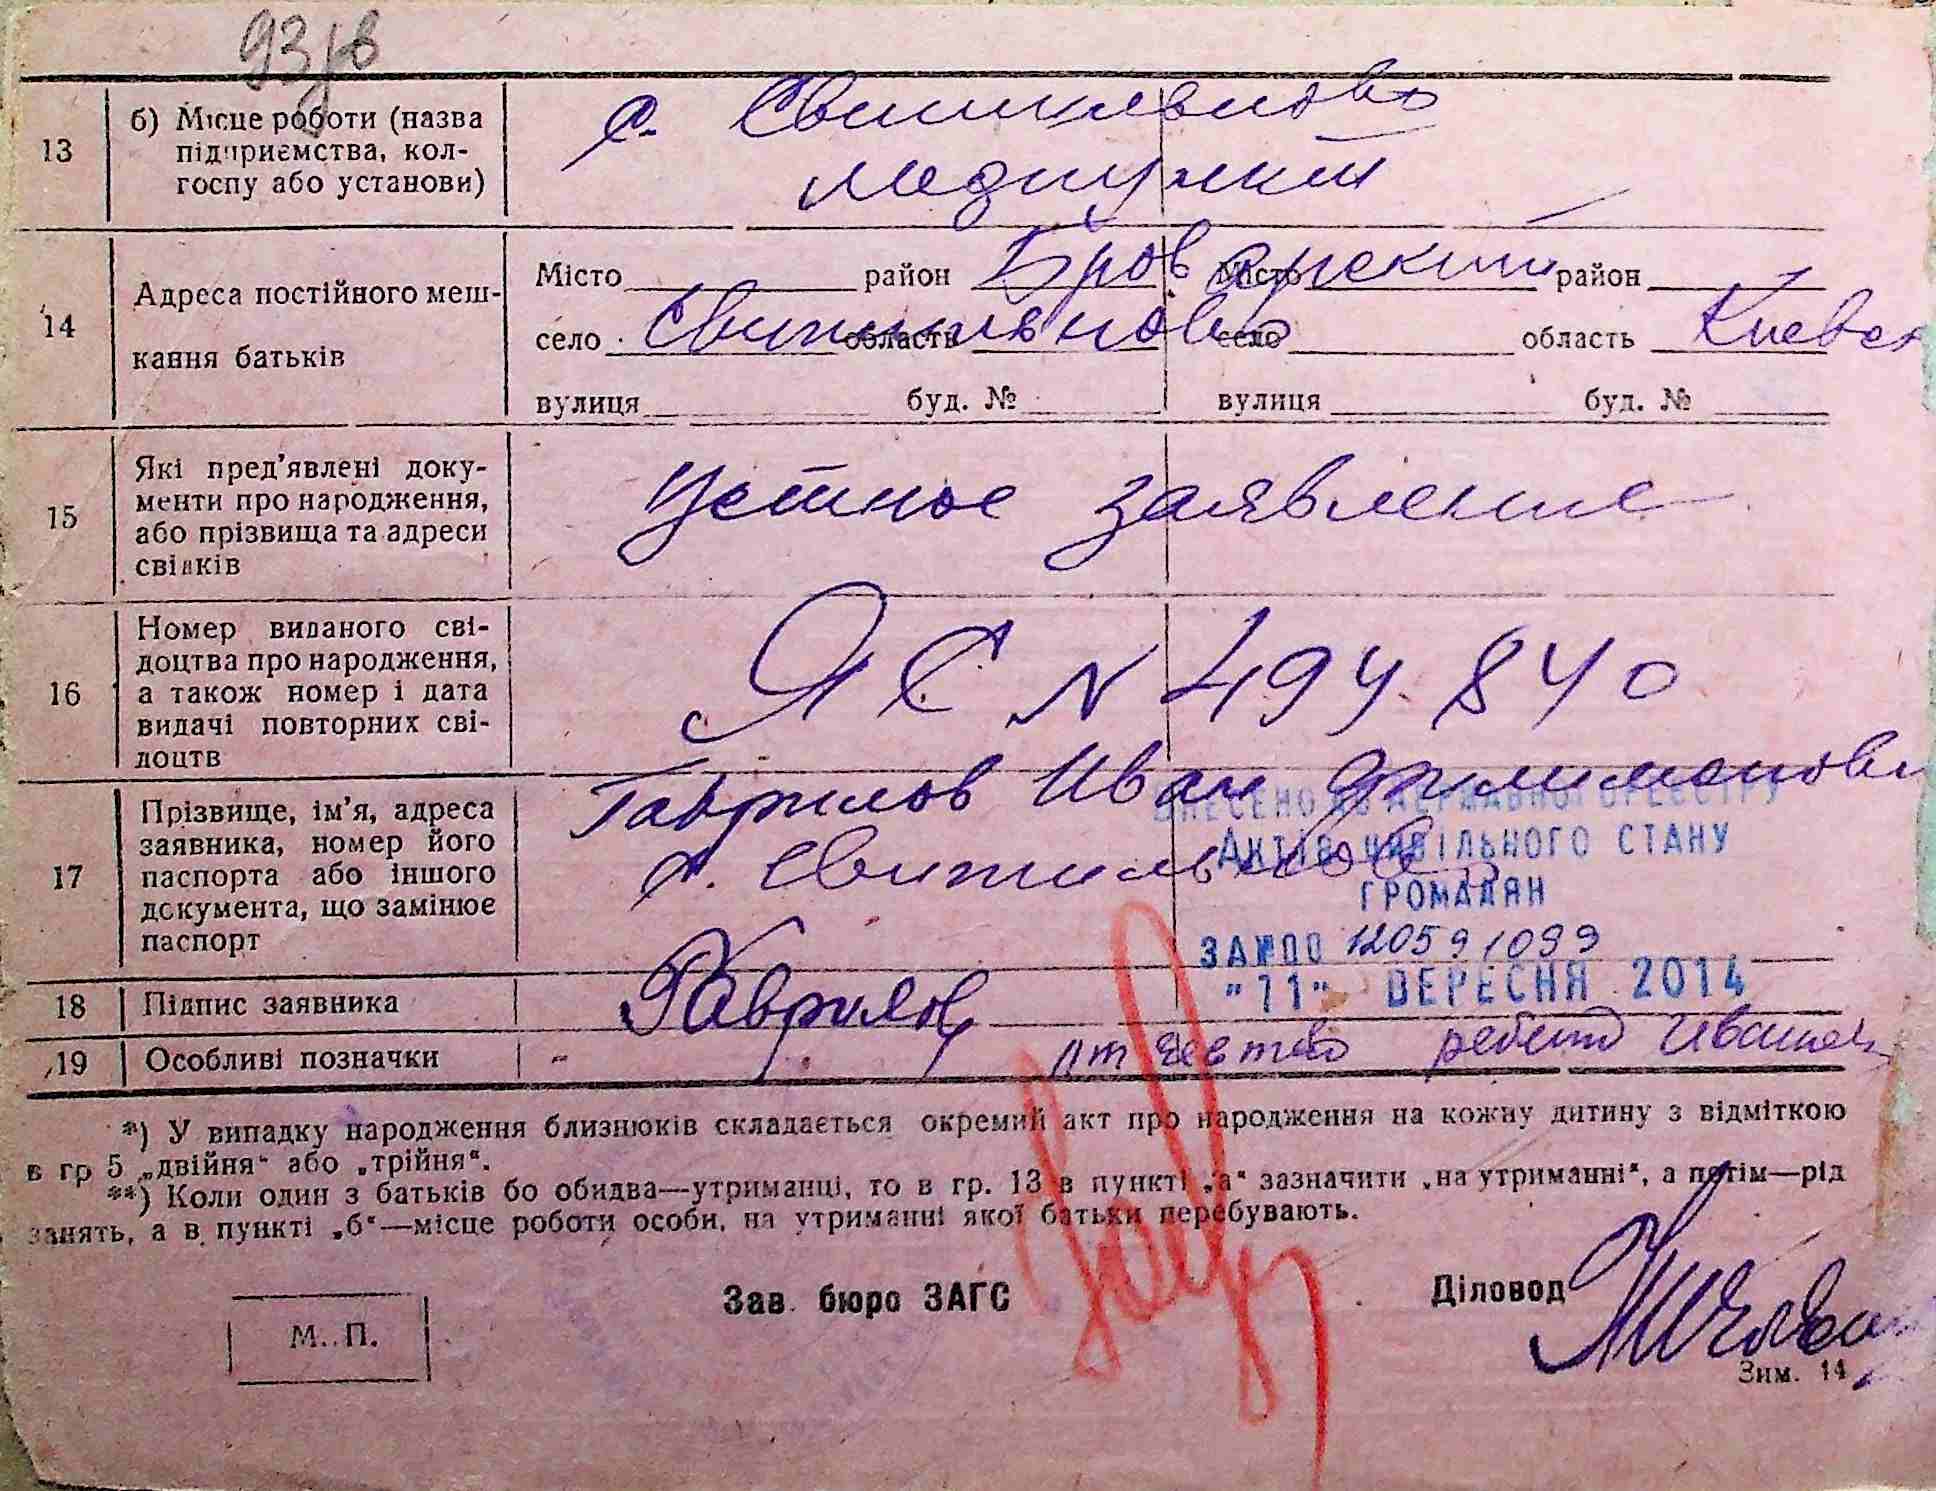 13 б) Місце роботи (назва підприємства, колгоспу або установи)
с. Свитильново
медпункт
14 Адреса постійного мешкання батьків
Місто район Броварский Місто район
село Свитильново область село область Киевск
вулиця буд. № вулиця буд. №
15 Які пред'явлені документи про народження, або прізвища та адреси свідків
устное заявление
16 Номер виданого свідоцтва про народження, а також номер і дата видачі повторних свідоцтв
ЯС N 494840
17 Прізвище, ім'я, адреса заявника, номер його паспорта або іншого документа, що замінює паспорт
Гаврилов Иван Филимонови
с. Свитильнов
ВНЕСЕНО ДО ДЕРЖАВНОГО РЕЄСТРУ
АКТІВ ЦИВІЛЬНОГО СТАНУ
ГРОМАДЯН
ЗА №ПО 120591099
"11" ВЕРЕСНЯ 2014
18 Підпис заявника
Гаврилов
19 Особливі позначки
*) У випадку народження близнюків складається окремий акт про народження на кожну дитину з відміткою
в гр 5 „двійня“ або „трійня“.
**) Коли один з батьків бо обидва—утриманці, то в гр. 13 в пункті „а“ зазначити „на утриманні“, а потім—рід
занять, а в пункті „б“—місце роботи особи, на утриманні якої батьки перебувають.
Зав. бюро ЗАГС
Діловод
М. П.
Зим. 14